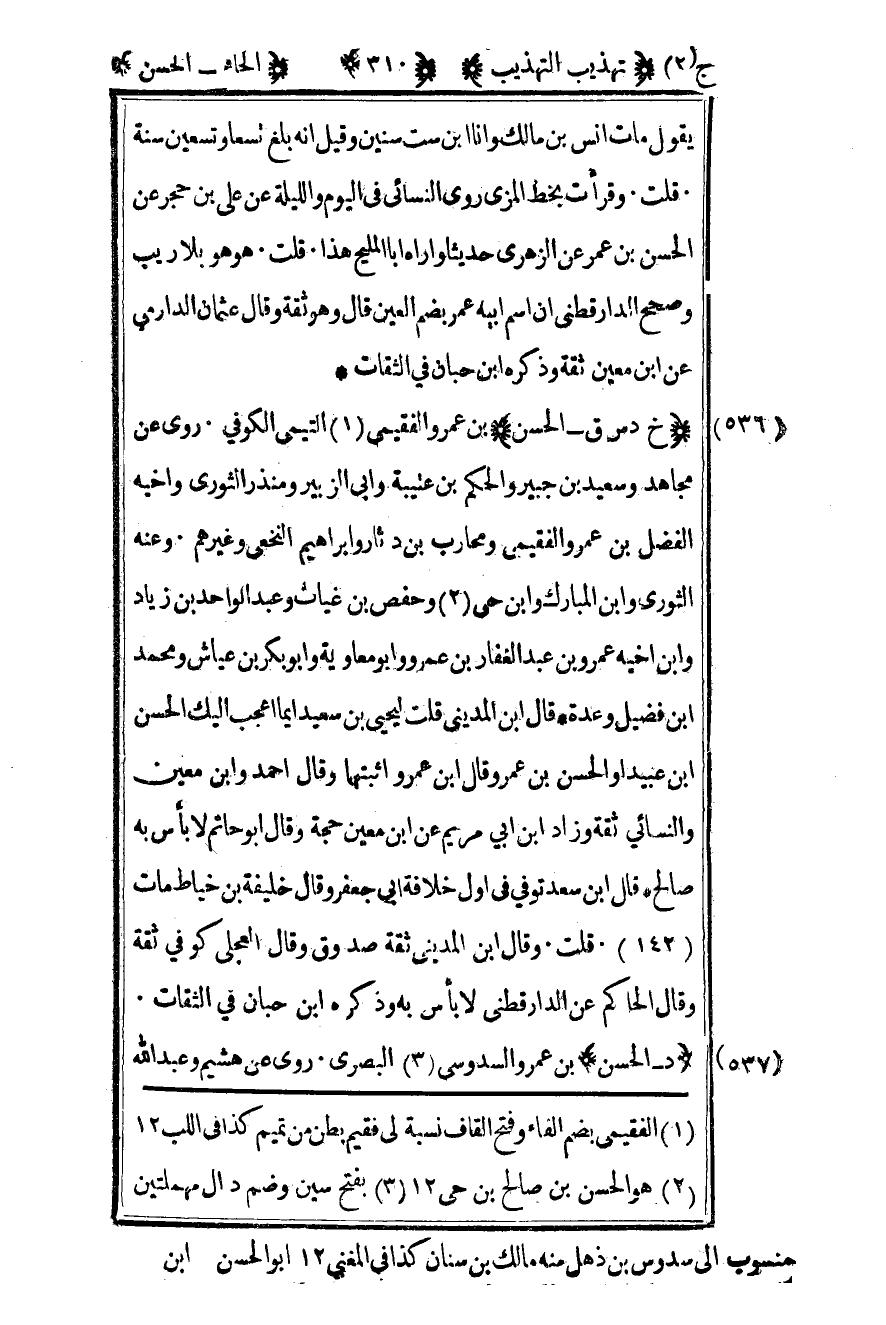 ج(٢) ﴿ تهذيب التهذيب ﴾ ﴿ ٣١٠ ﴾ ﴿ الحاء ــ الحسن ﴾
يقول مات انس بن مالك وانا ابن ست سنين وقيل انه بلغ تسعا وتسعين سنة
٠ قلت ٠ وقرأت بخط المزى روى النسائى فى اليوم والليلة عن على بن حجر عن
الحسن بن عمر عن الزهرى حديثا واراه ابا المليح هذا ٠ قلت ٠ هو هو بلا ريب
وصحح الدارقطنى ان اسم ابيه عمر بضم العين قال وهو ثقة وقال عثمان الدارمي
عن ابن معين ثقة وذكره ابن حبان في الثقات *
(٥٣٦) ﴿ خ دس ق ــ الحسن ﴾ بن عمرو الفقيمي (١) التيمى الكوفي ٠ روى عن
مجاهد وسعيد بن جبير والحكم بن عتيبة وابى الزبير ومنذر الثورى واخيه
الفضل بن عمرو الفقيمى ومحارب بن دثار وابراهيم النخعى وغيرهم ٠ وعنه
الثورى وابن المبارك وابن حى (٢) وحفص بن غياث وعبد الواحد بن زياد
وابن اخيه عمرو بن عبد الغفار بن عمرو وابو معاوية وابو بكر بن عياش ومحمد
ابن فضيل وعدة * قال ابن المدينى قلت ليحيى بن سعيد ايما اعجب اليك الحسن
ابن عبيد او الحسن بن عمرو قال ابن عمرو اثبتها وقال احمد وابن معين
والنسائي ثقة وزاد ابن ابي مريم عن ابن معين حجة وقال ابو حاتم لا بأس به
صالح * قال ابن سعد توفي فى اول خلافة ابي جعفر وقال خليفة بن خياط مات
(١٤٢) ٠ قلت ٠ وقال ابن المدينى ثقة صدوق وقال العجلى كوفي ثقة
وقال الحاكم عن الدارقطنى لا بأس به وذكره ابن حبان في الثقات ٠
(٥٣٧) ﴿ د ــ الحسن ﴾ بن عمرو السدوسي (٣) البصرى ٠ روى عن هشيم وعبدالله
(١) الفقيمى بضم الفاء وفتح القاف نسبة لى فقيم بطن من تميم كذا فى اللب ١٢
(٢) هو الحسن بن صالح بن حى ١٢ (٣) بفتح سين وضم دال مهملتين
منسوب الى سدوس بن ذهل منه مالك بن سنان كذا في المغني ١٢ ابو الحسن ابن